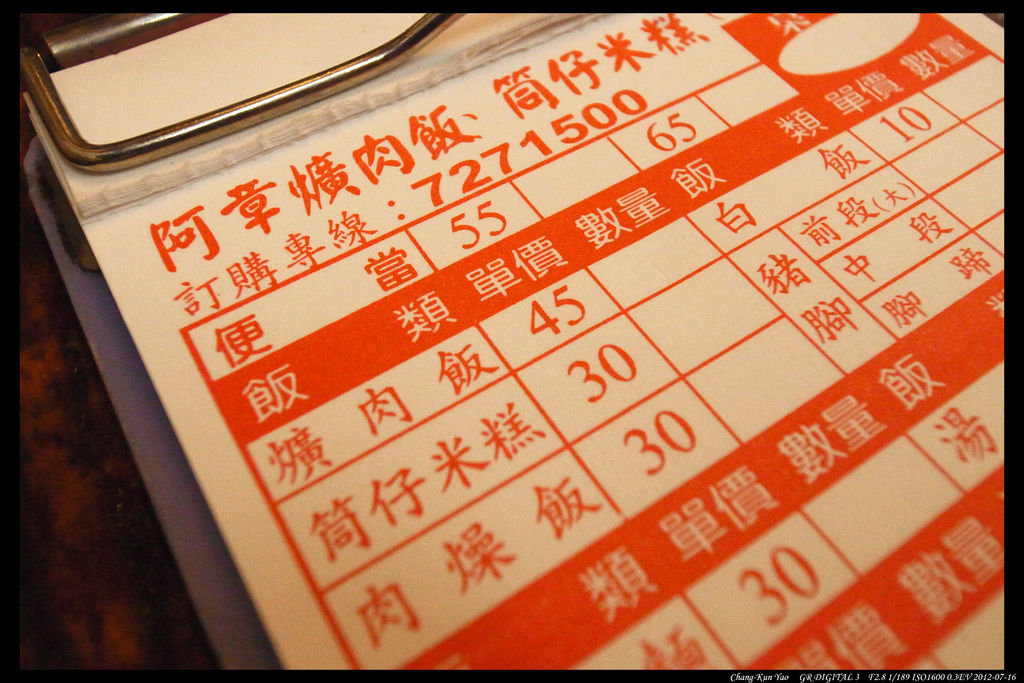 阿章爌肉飯 筒仔米糕
訂購專線：7271500
便當 55 65
飯類 單價 數量 飯類 單價 數量
爌肉飯 45 白飯 10
筒仔米糕 30 豬腳 前段(大)
肉燥飯 30 中段
腳蹄
類 單價 數量 飯
30 湯
價 數量
Chang-Kun Yao GR DIGITAL 3 F2.8 1/189 ISO1600 0.3EV 2012-07-16